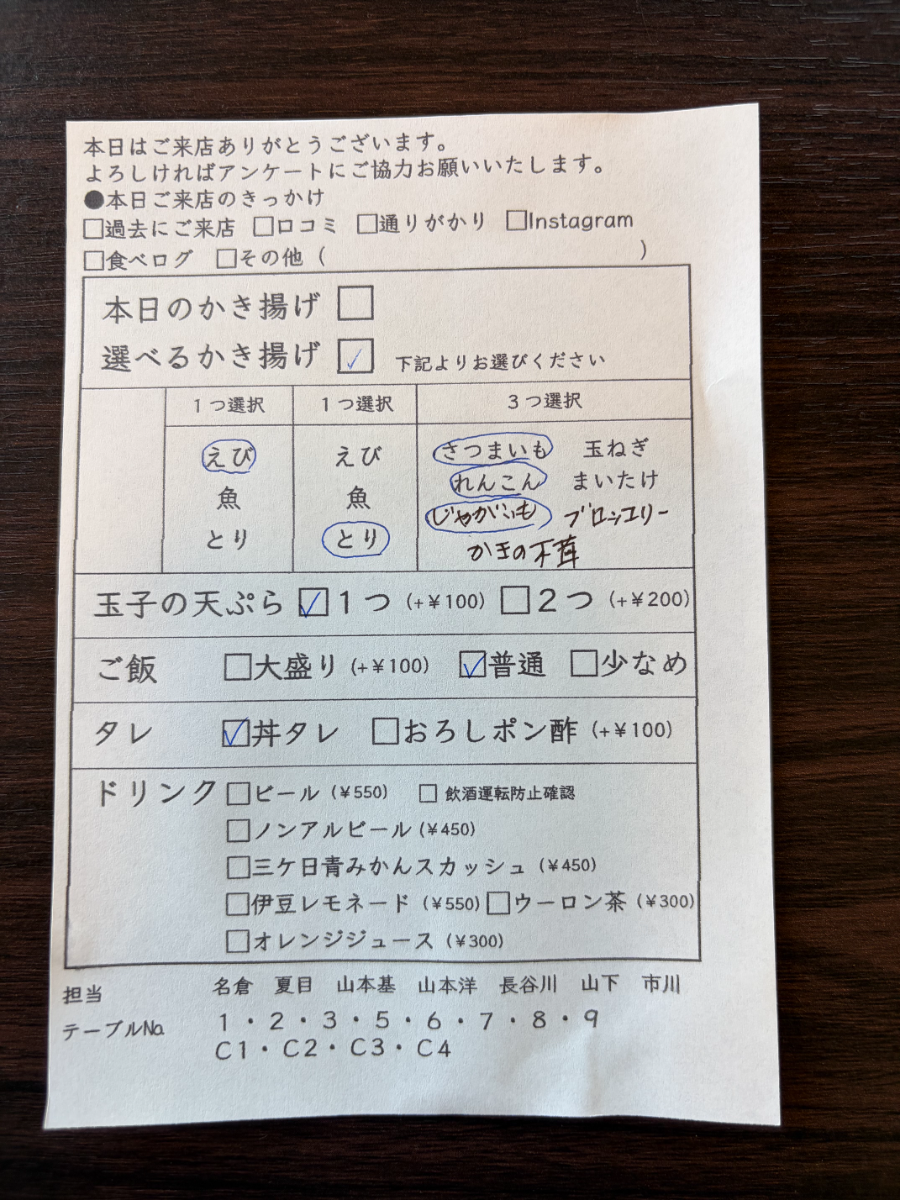 本日はご来店ありがとうございます。
よろしければアンケートにご協力お願いいたします。
●本日ご来店のきっかけ
□過去にご来店 □口コミ □通りがかり □Instagram
□食べログ □その他 ( )
本日のかき揚げ □
選べるかき揚げ ☑ 下記よりお選びください
1つ選択 1つ選択 3つ選択
えび えび さつまいも 玉ねぎ
魚 魚 れんこん まいたけ
とり とり じゃがいも ブロッコリー
かきの木茸
玉子の天ぷら ☑1つ (+¥100) □2つ (+¥200)
ご飯 □大盛り (+¥100) ☑普通 □少なめ
タレ ☑丼タレ □おろしポン酢 (+¥100)
ドリンク □ビール (¥550) □ 飲酒運転防止確認
□ノンアルビール (¥450)
□三ケ日青みかんスカッシュ (¥450)
□伊豆レモネード (¥550) □ウーロン茶 (¥300)
□オレンジジュース (¥300)
担当 名倉 夏目 山本基 山本洋 長谷川 山下 市川
テーブル№ 1・2・3・5・6・7・8・9
C1・C2・C3・C4